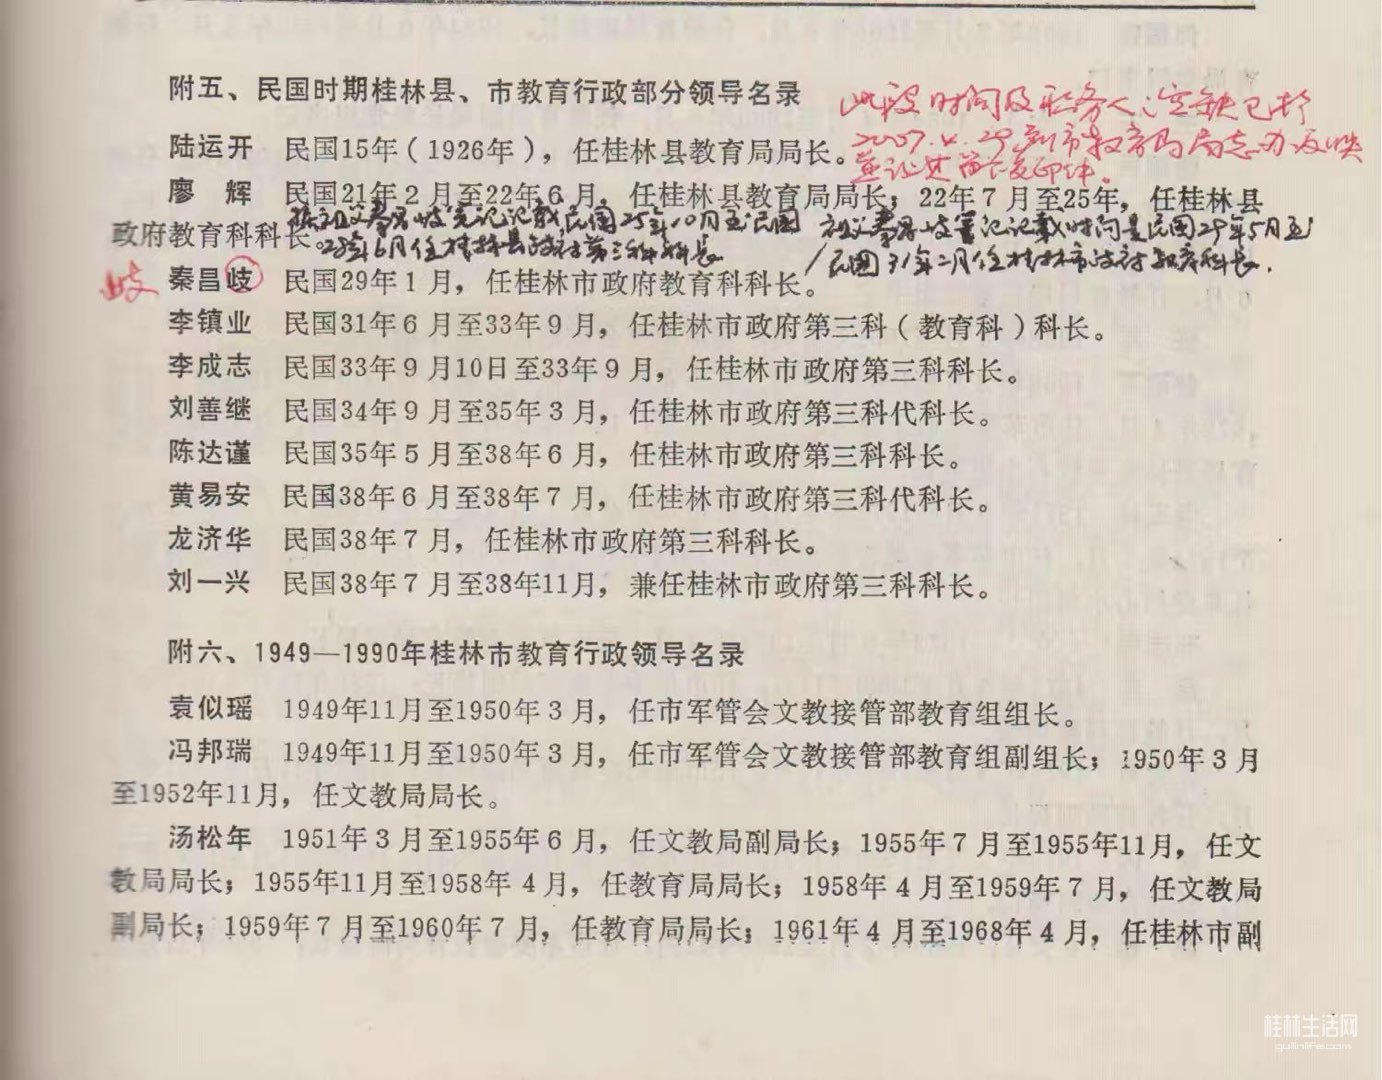 附五、民国时期桂林县、市教育行政部分领导名录
此段时间及职务人:空缺已于
2007.4.29到市教育局局志办反映
并证述留下复印件。
陆运开　民国15年(1926年)，任桂林县教育局局长。
廖　辉　民国21年2月至22年6月，任桂林县教育局局长；22年7月至25年，任桂林县
政府教育科科长。
祖父秦昌岐笔记记载,民国25年10月至民国
28年6月任桂林县政府第三科科长
祖父秦昌岐笔记记载时间是民国29年5月至
民国31年二月任桂林市政府教育科长.
岐
秦昌歧　民国29年1月，任桂林市政府教育科科长。
李镇业　民国31年6月至33年9月，任桂林市政府第三科(教育科)科长。
李成志　民国33年9月10日至33年9月，任桂林市政府第三科科长。
刘善继　民国34年9月至35年3月，任桂林市政府第三科代科长。
陈达谨　民国35年5月至38年6月，任桂林市政府第三科科长。
黄易安　民国38年6月至38年7月，任桂林市政府第三科代科长。
龙济华　民国38年7月，任桂林市政府第三科科长。
刘一兴　民国38年7月至38年11月，兼任桂林市政府第三科科长。
附六、1949—1990年桂林市教育行政领导名录
袁似瑶　1949年11月至1950年3月，任市军管会文教接管部教育组组长。
冯邦瑞　1949年11月至1950年3月，任市军管会文教接管部教育组副组长；1950年3月
至1952年11月，任文教局局长。
汤松年　1951年3月至1955年6月，任文教局副局长；1955年7月至1955年11月，任文
教局局长；1955年11月至1958年4月，任教育局局长；1958年4月至1959年7月，任文教局
副局长；1959年7月至1960年7月，任教育局局长；1961年4月至1968年4月，任桂林市副
桂林生活网
guilinlife.com